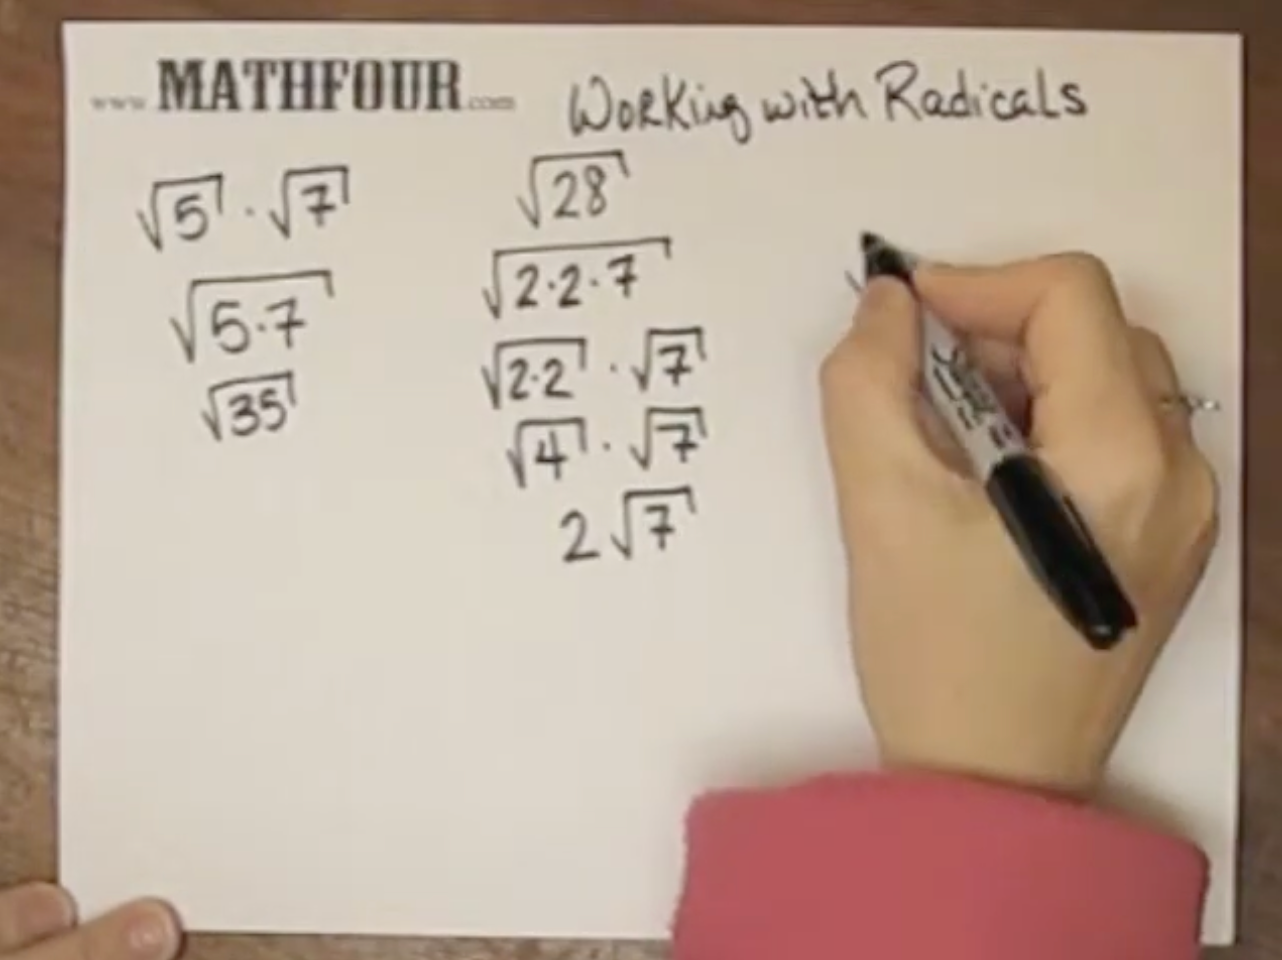 www.MATHFOUR.com Working with Radicals
√5 · √7
√5·7
√35
√28
√2·2·7
√2·2 · √7
√4 · √7
2√7